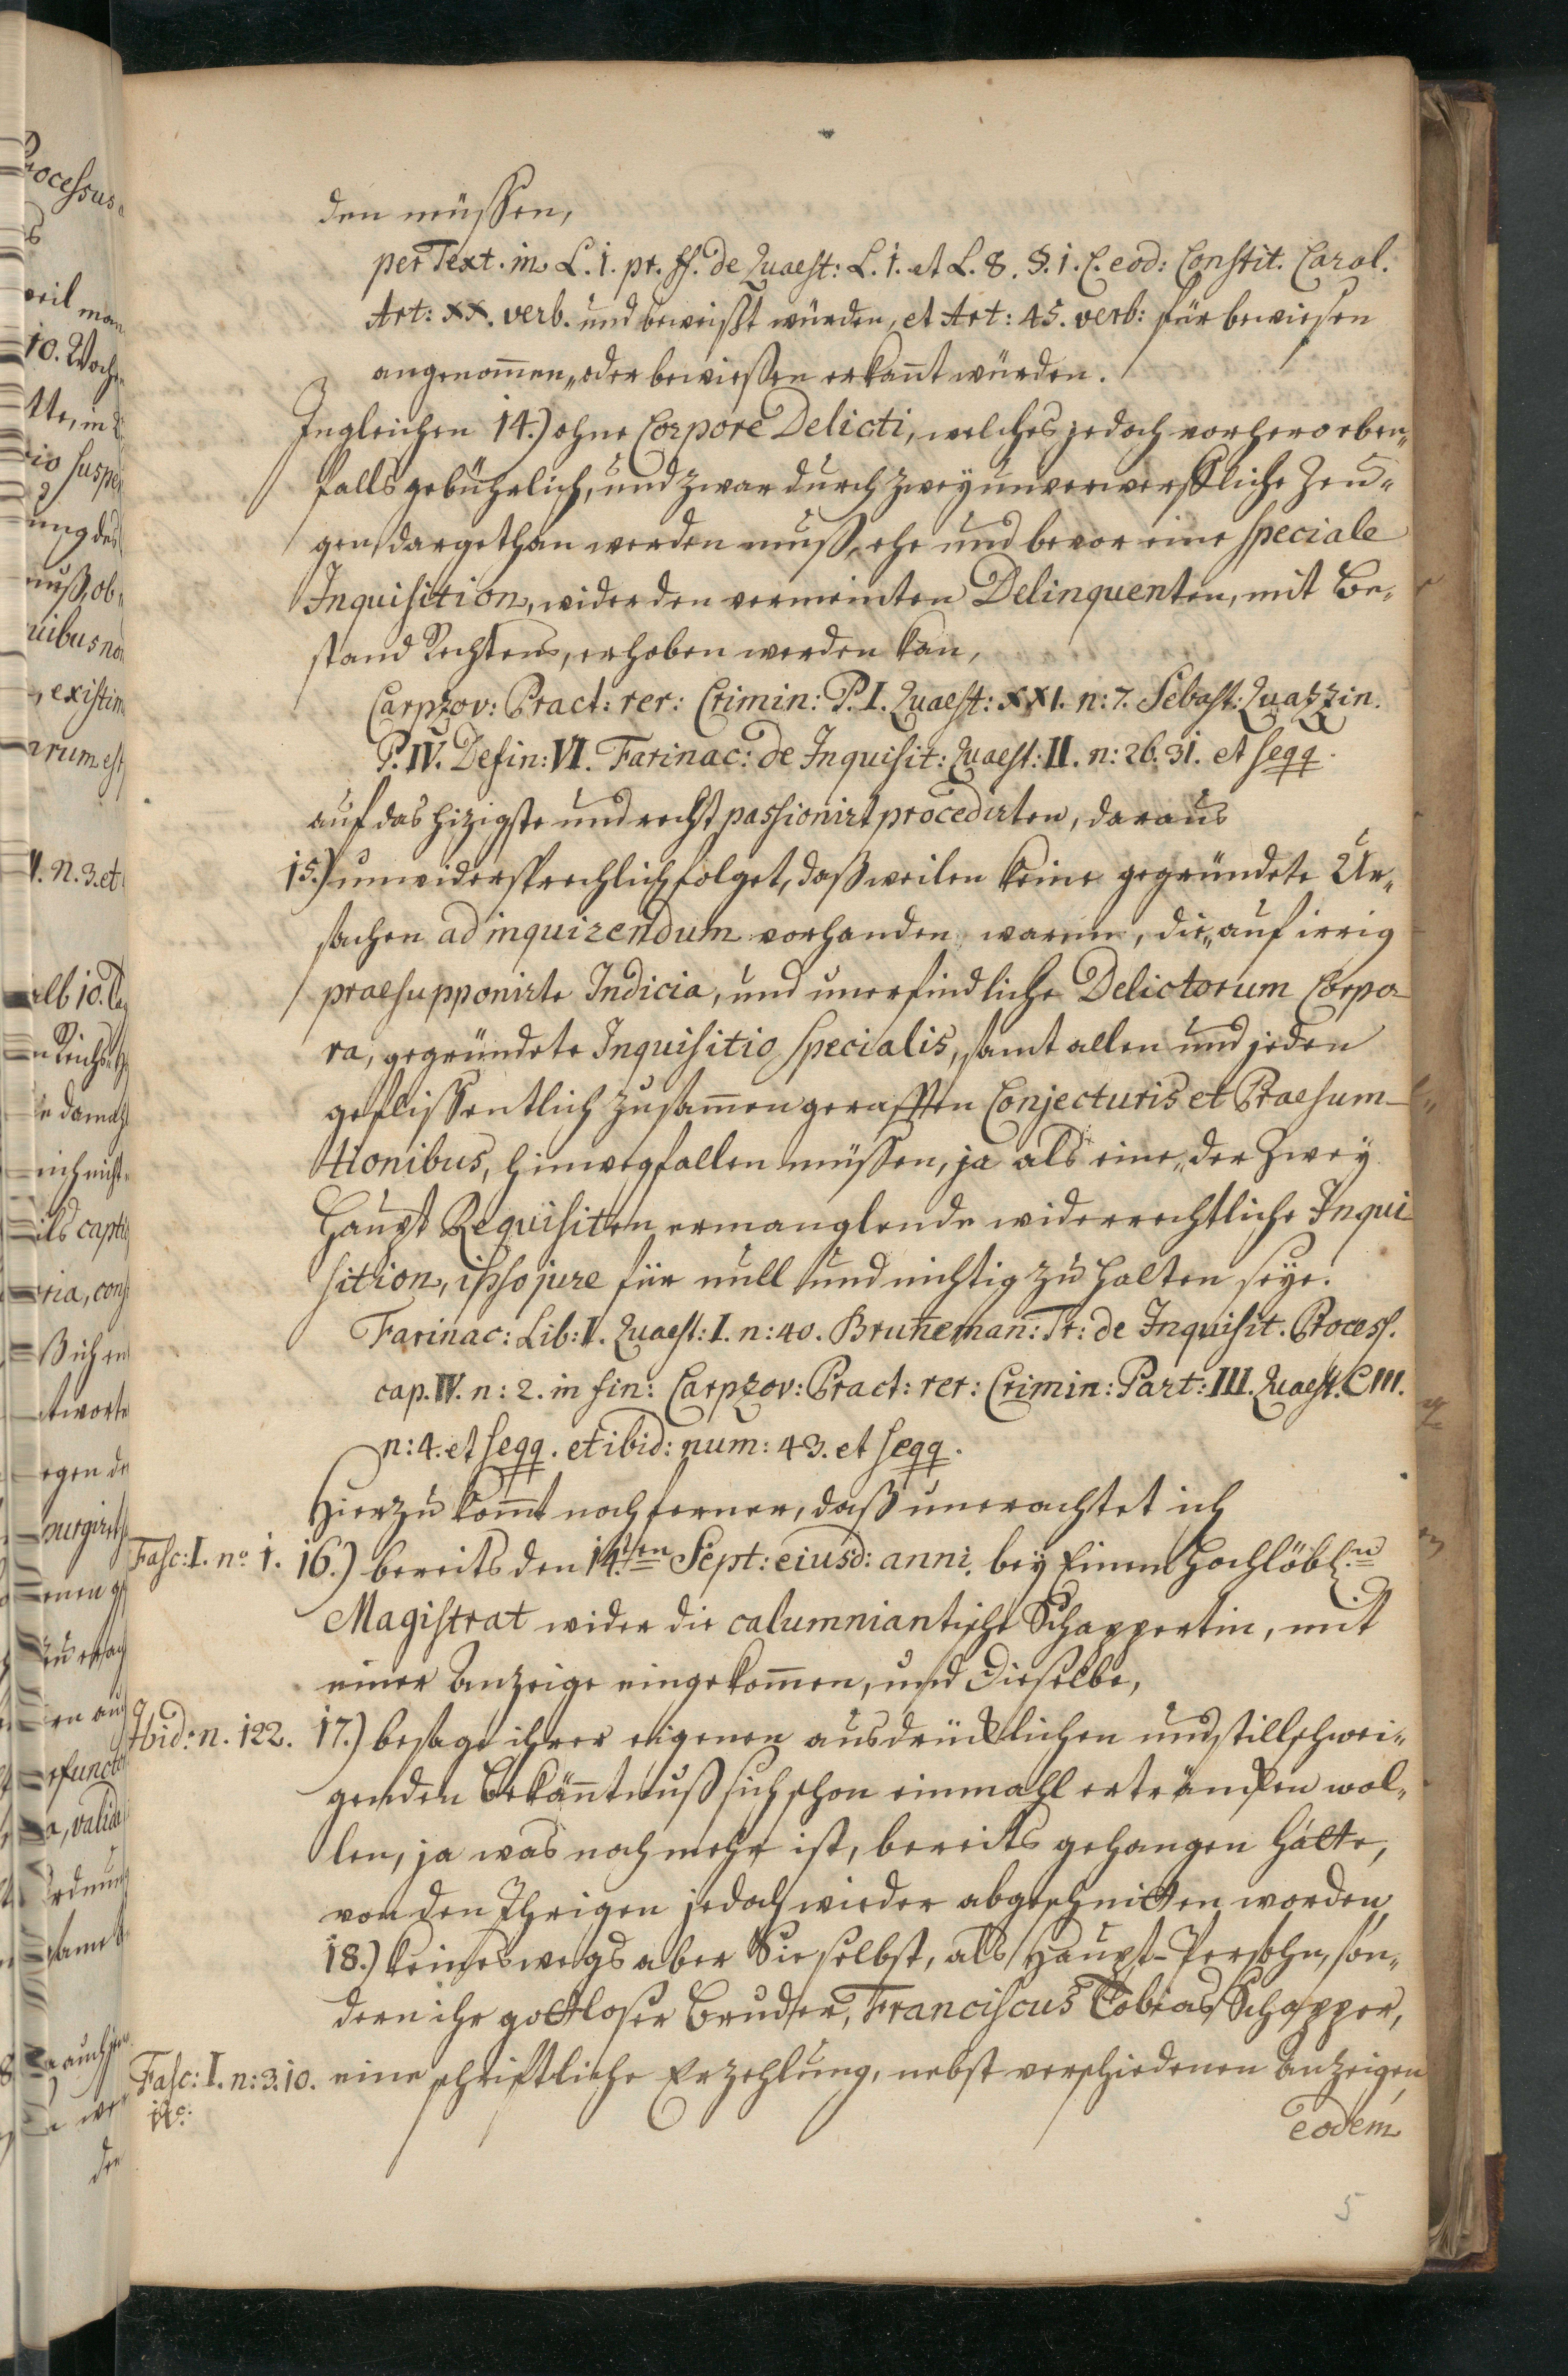 den müssen,
per Text. in L. 1. pr. ff. de Quaest: L. 1. et L. 8. §. 1. C. eod: Constit. Carol.
Art: XX. verb. und beweißt würden, et Art: 45. verb: für bewiesen
angenom̄en, oder bewießen erkan̄t würden.
Ingleichen 14.) ohne Corpore Delicti, welches jedoch vorhero eben„
falls gebührlich, und zwar durch zwey unverwerffliche Zeu„
gen dargethan werden muß, ehe und bevor eine speciale
Inquisition, wider den vermeinten Delinquenten, mit Be„
stand Rechtens, erhoben werden kan,
Carpzov: Pract: rer: Crimin: P. I. Quaest: XXI. n: 7. Sebast: Quazzin.
P. IV. Defin: VI. Farinac: de Inquisit: Quaest: II. n: 26. 31. et seqq.
auf das hizigste und recht passionirt procedirten, daraus
15.) unwidersprechlich folget, daß weilen keine gegründete Ur„
sachen ad inquirendum vorhanden waren, die, auf irrig
praesupponirte Indicia, und unerfindliche Delictorum Corpo-
ra, gegründete Inquisitio specialis, samt allen und jeden
geflissentlich zusam̄en gerafften Conjecturis et Praesum-
tionibus, hinwegfallen müssen, ja als eine, der zwey
Haupt Requisiten ermanglende widerrechtliche Inqui
sition, ipso jure für null und nichtig zu halten seye.
Farinac: Lib: I. Quaest: I. n: 40. Brun̄eman̄: Tr: de Inquisit. Process.
cap. IV. n: 2. in fin: Carpzov: Pract: rer: Crimin: Part: III. Quaest. CIII.
n: 4. et seqq. et ibid: num: 43. et seqq.
Hierzu kom̄t noch ferner, daß unerachtet ich
Fasc: I. no. 1. 16.) bereits den 14.ten Sept: eiusd: anni, bey Einem Hochlöbl.n
Magistrat wider die calumniantische Schappertin, mit
einer Anzeige eingekom̄en, und Dieselbe,
Ibid: n. 122. 17.) besage ihrer eigenen ausdrücklichen und stillschwei„
genden Bekän̄tnuß sich schon einmahl ertränken wol„
len, ja was noch mehr ist, bereits gehangen hätte,
von den Ihrigen jedoch wieder abgeschnitten worden,
18.) keineswegs aber Sie selbst, als Haupt-Persohn, son„
dern ihr gottloser Bruder, Franciscus Tobias Schapper,
Fasc: I. n: 3. 10. eine schriftliche Erzehlung, nebst verschiedenen Anzeigen,
eodem
5